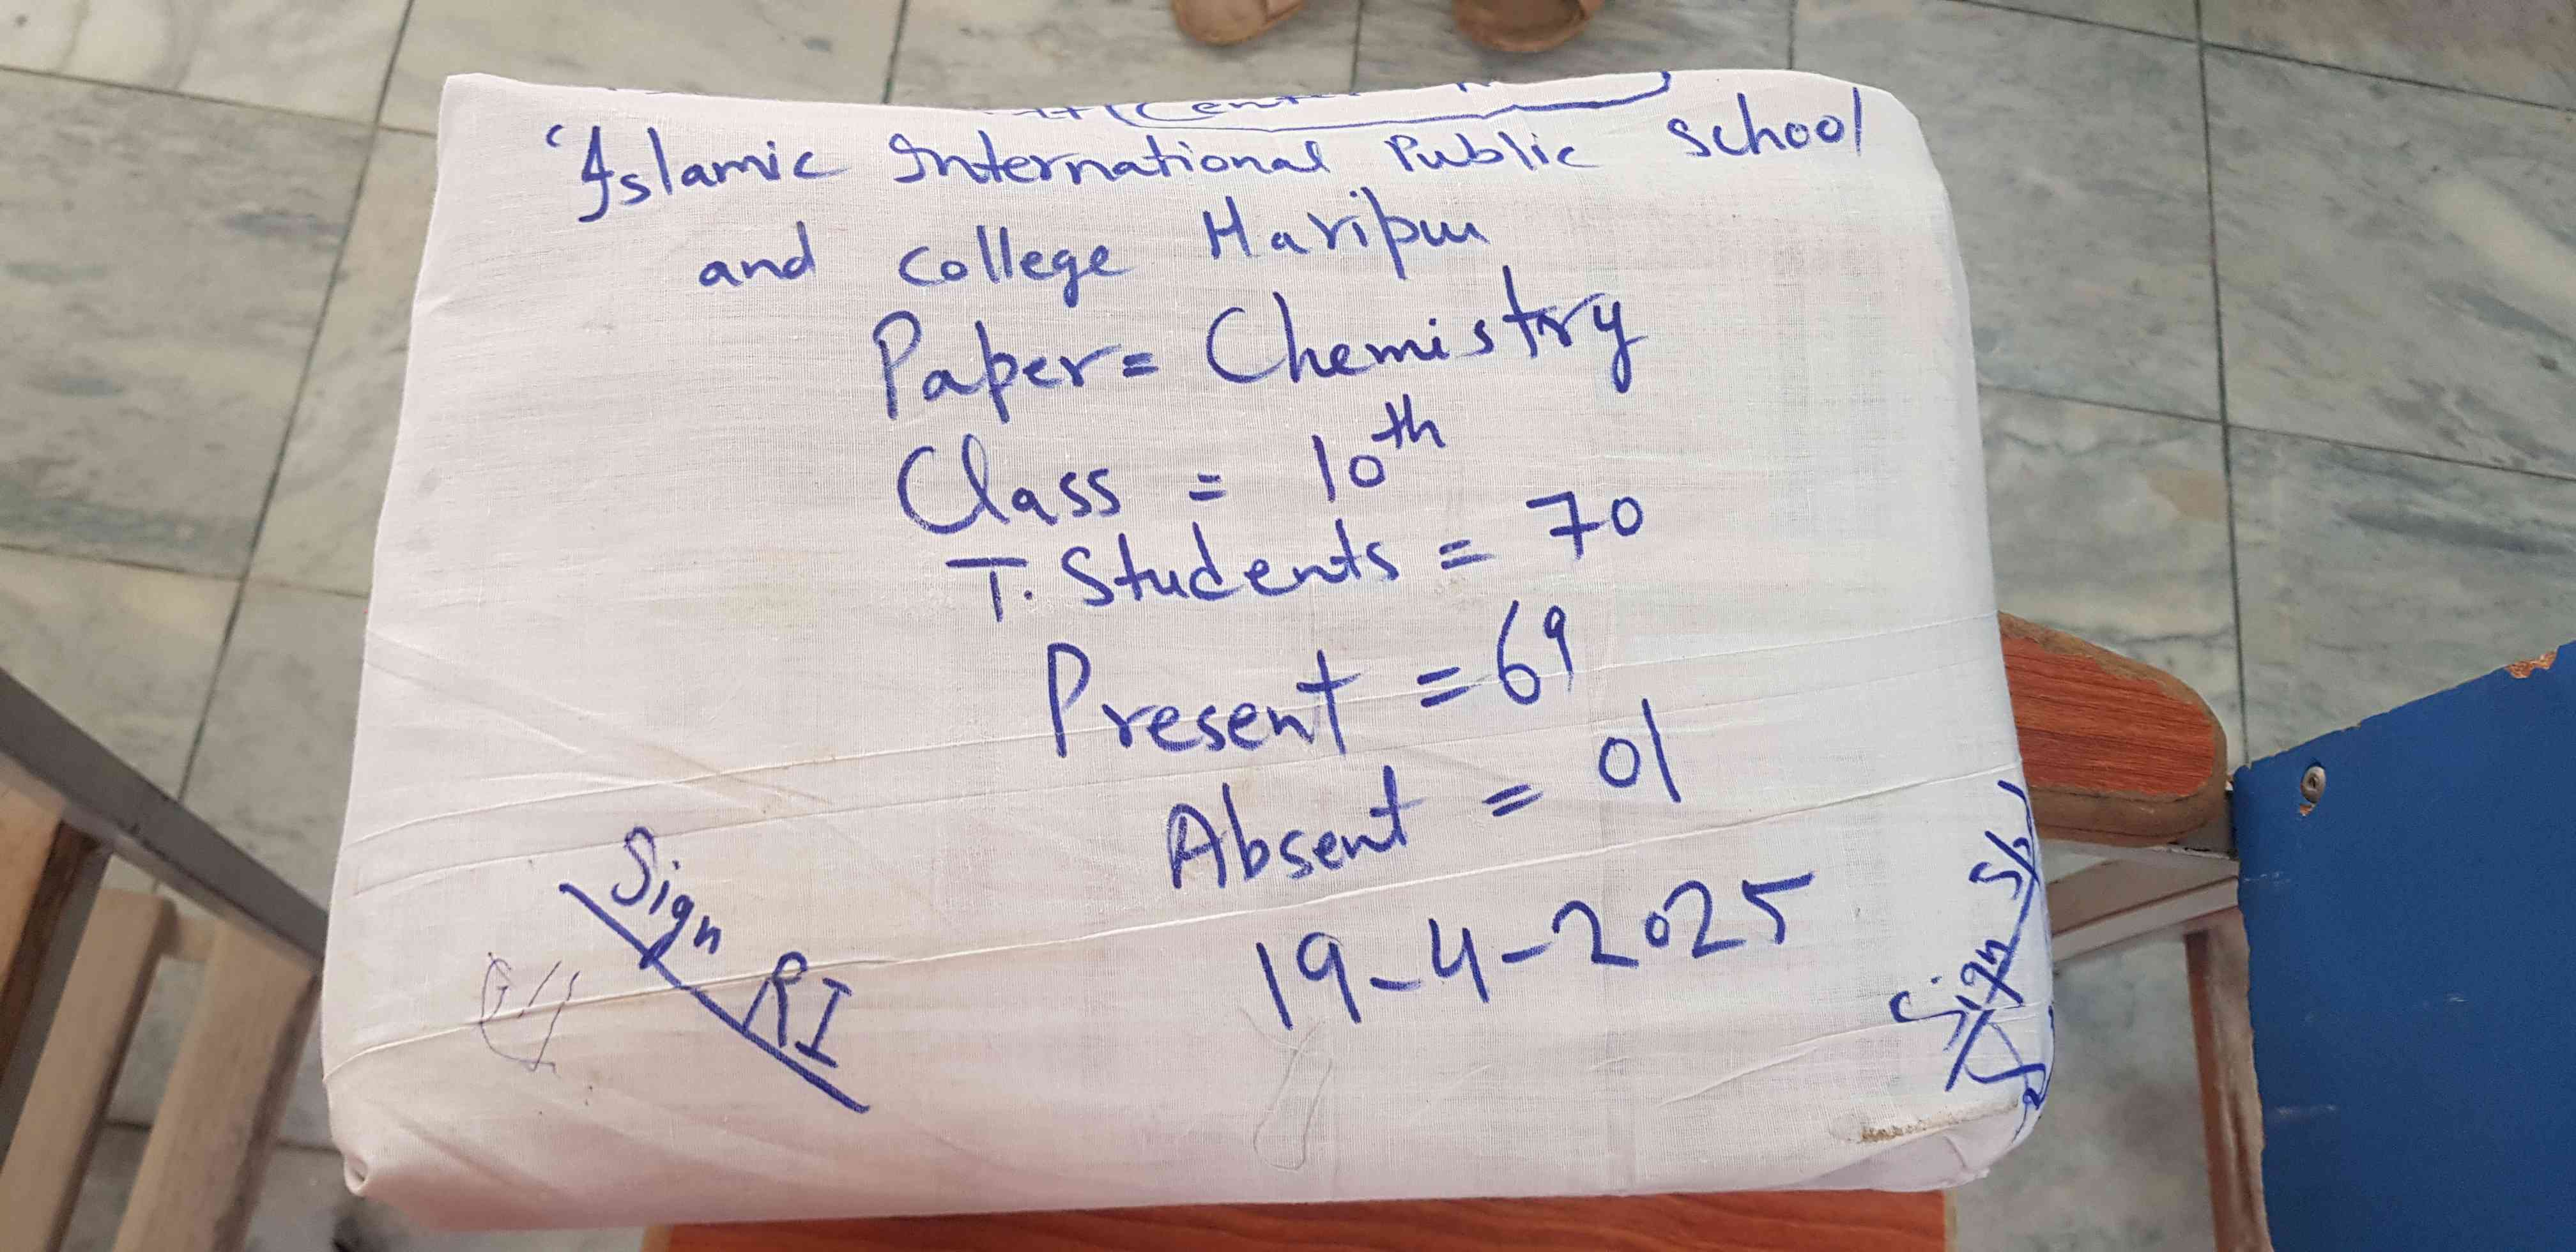 Islamic International Public School
and college Haripur
Paper= Chemistry
Class = 10th
T. Students = 70
Present = 69
Absent = 01
19-4-2025
Sign
RI
Sign